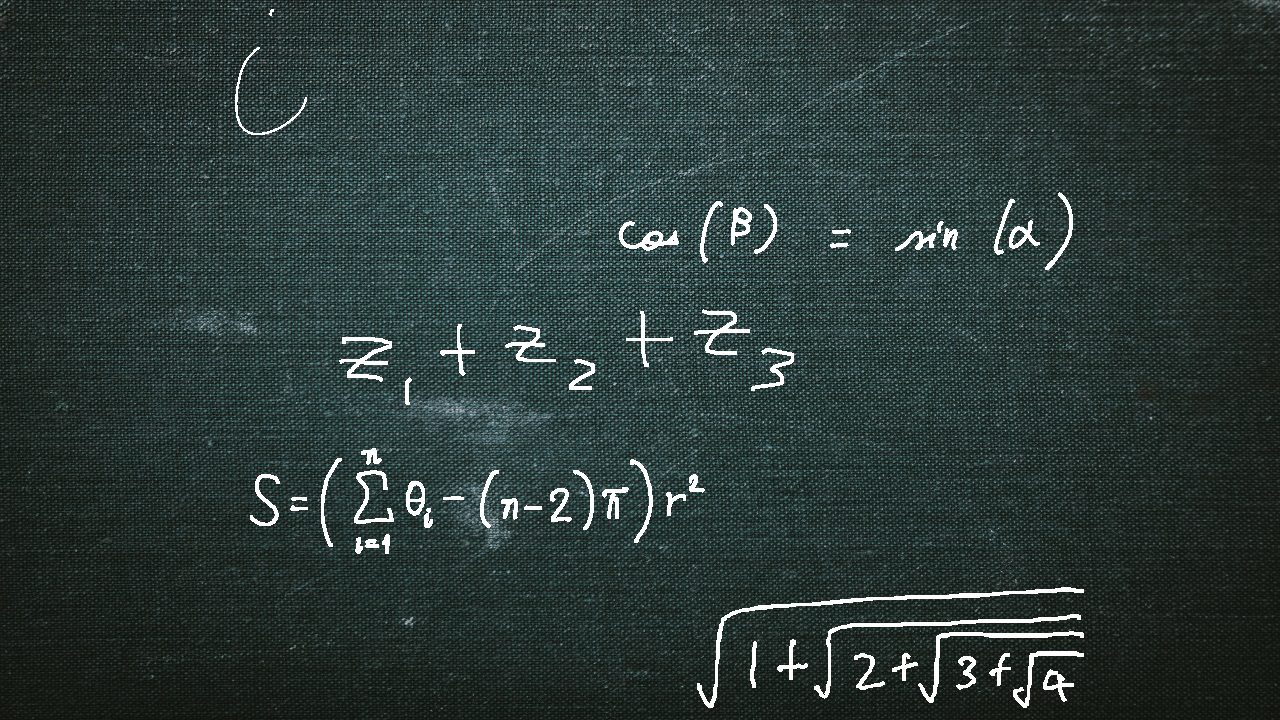 i
cos(β) = sin(α)
z₁ + z₂ + z₃
S=(∑ⁿᵢ₌₁ θᵢ - (n-2)π)r²
√(1+√(2+√(3+√4)))